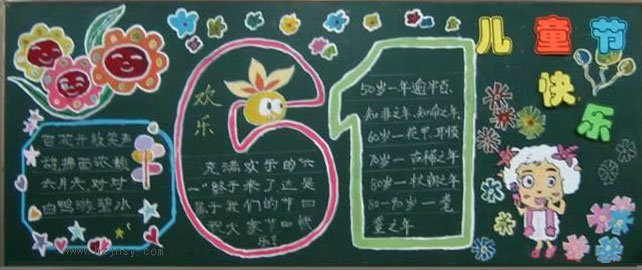 儿童节
快乐
百花开放笑声
甜,拂面
六月天,对对
白鸭游碧水
欢
乐
充满欢乐的"六
一"终于来了,这是
属于我们的节日
祝大家节日快
乐!
50岁一年逾半百、
知非之年、知命之年
60岁一花甲、耳顺
70岁一古稀之年
80岁一杖朝之年
80一90岁一耄
耋之年